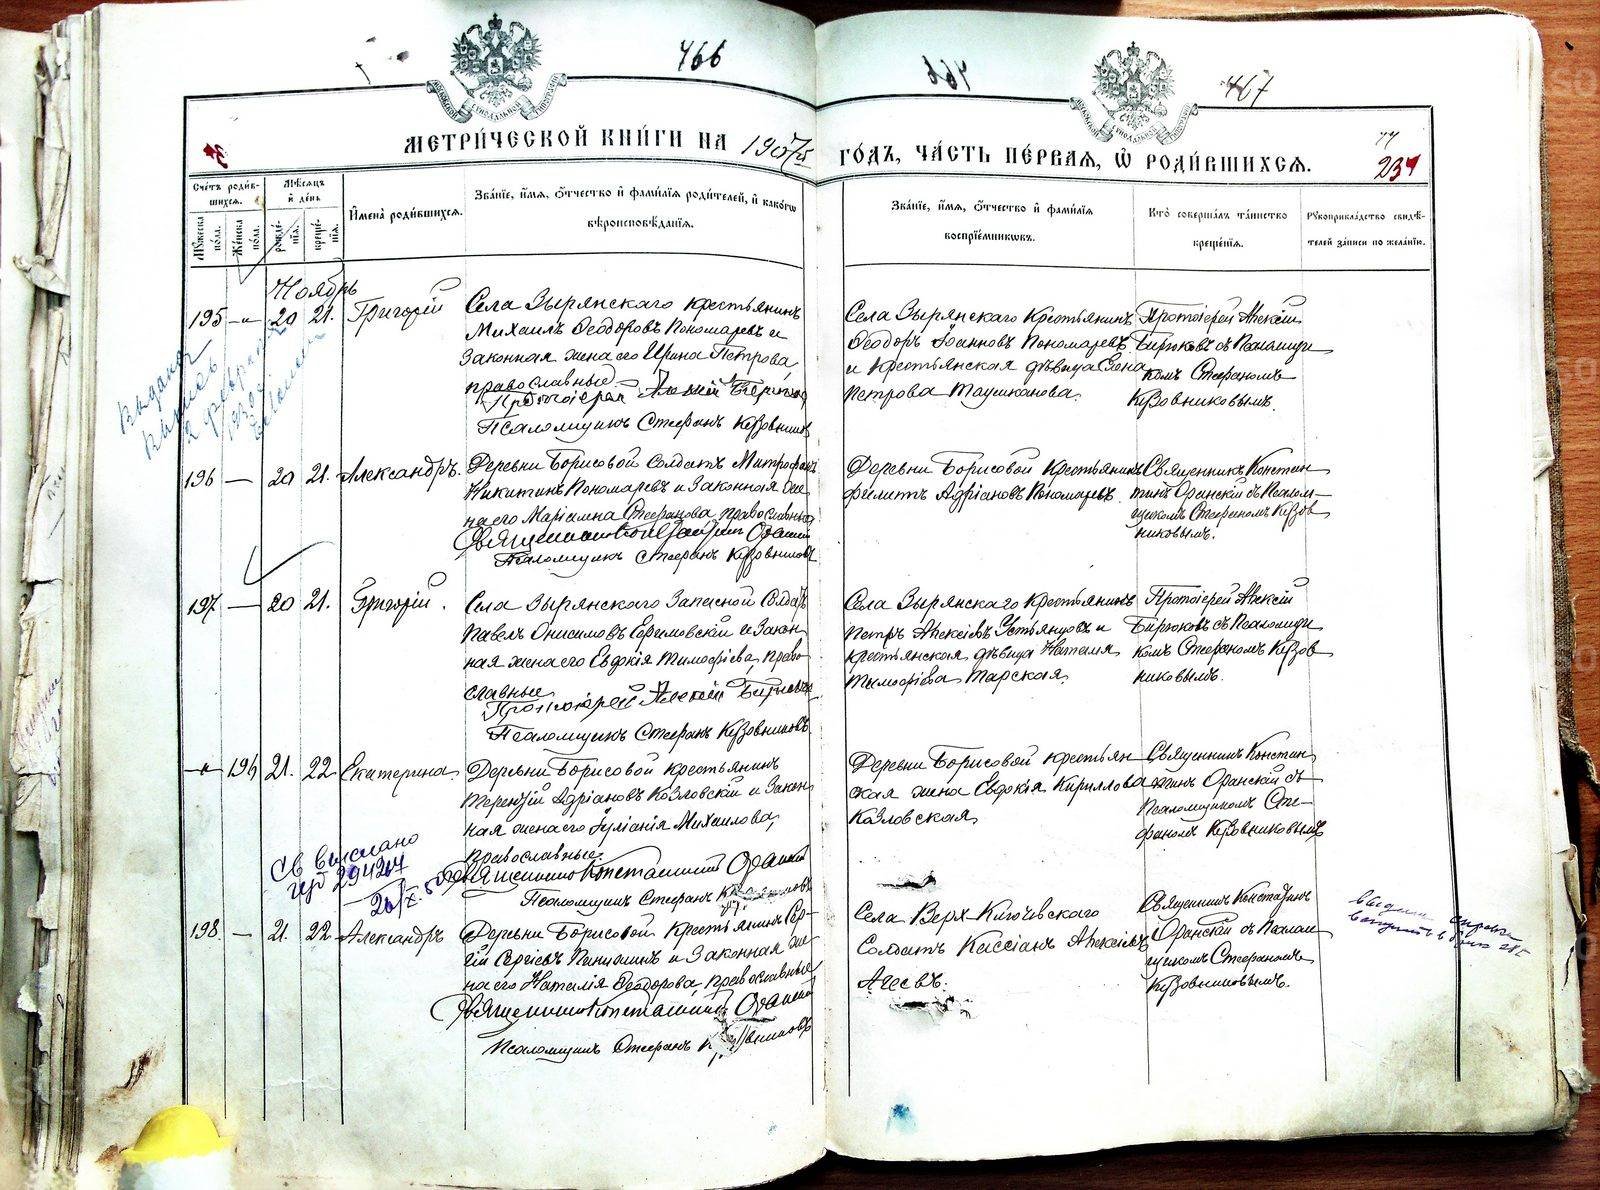 466
467
МЕТРИ́ЧЕСКОЙ КНИ́ГИ НА 1907/5
ГО́ДЪ, ЧА́СТЬ ПЕ́РВАЯ, Ѡ РОДИ́ВШИХСЯ.
234
Сче́тъ роди́в-
шихся.
Му́жеска по́ла.
Же́нска по́ла.
Мѣ́сяцъ
и де́нь
рожде́нія.
креще́нія.
И́мена роди́вшихся.
Зва́ніе, и́мя, о́тчество и фами́лія роди́телей, и како́гѡ
вѣроисповѣ́данія.
Зва́ніе, и́мя, о́тчество и фами́лія
воспріе́мниковъ.
Кто̀ соверша́лъ та́инство
креще́нія.
Рукоприкла́дство свидѣ́-
телей за́писи по жела́нію.
Ноябрь
195 -„- 20 21. Григорій
Села Зырянскаго крестьянинъ
Михаилъ Ѳеодоровъ Пономаревъ и
законная жена его Ирина Петрова,
православные
Протоіерей Алексій Бирюков
Псаломщикъ Стефанъ Кузовников
Села Зырянскаго Крестьянинъ
Ѳеодоръ Іоанновъ Пономаревъ
и Крестьянская дѣвица Елена
Петрова Таушканова.
Протоіерей Алексій
Бирюковъ съ Псаломщи
комъ Стефаномъ
Кузовниковымъ.
196 — 20 21. Александръ.
Деревни Борисовой Солдатъ Митрофанъ
Никитинъ Пономаревъ и законная же
на его Маріамна Стефанова, православные
Священникъ Константин Оранский
Псаломщикъ Стефанъ Кузовников
Деревни Борисовой крестьянинъ
Филиппъ Адріановъ Пономаревъ.
Священникъ Констан
тинъ Оранскій съ Псалом-
щикомъ Стефаномъ Кузов
никовымъ.
197 — 20 21. Григорій.
Села Зырянскаго Запасной Солдатъ
Павелъ Онисимовъ Ефимовскій и Закон
ная жена его Евдокія Тимофіева, право
славные
Протоіерей Алексій Бирюков
Псаломщикъ Стефанъ Кузовниковъ.
Села Зырянскаго Крестьянинъ
Петръ Алексіевъ Устьянцовъ и
крестьянская дѣвица Наталія
Тимофіева Тарская.
Протоіерей Алексій
Бирюковъ съ Псаломщи
комъ Стефаномъ Кузов
никовымъ.
-„- 194 21. 22 Екатерина.
Деревни Борисовой крестьянинъ
Терентій Адріановъ Козловскій и Закон
ная жена его Іуліанія Михаилова,
православные.
Священникъ Константинъ Оранский
Псаломщикъ Стефанъ
Деревни Борисовой крестьян
ская жена Евдокія Кириллова
Козловская
Священникъ Констан
тинъ Оранскій съ
Псаломщикомъ Сте-
фаномъ Кузовниковымъ
Св выслано
198. — 21. 22 Александръ
Деревни Борисовой Крестьянинъ Сер-
гій Сергіевъ и Законная же
на его Наталія Ѳеодорова, православные
Священникъ Константинъ Оранский
Псаломщикъ Стефанъ
Села Верх-Ключевскаго
Солдатъ Кассіанъ Алексіевъ
Агѣевъ.
Священникъ Константинъ
Оранскій съ Псалом
щикомъ Стефаномъ
Кузовниковымъ.